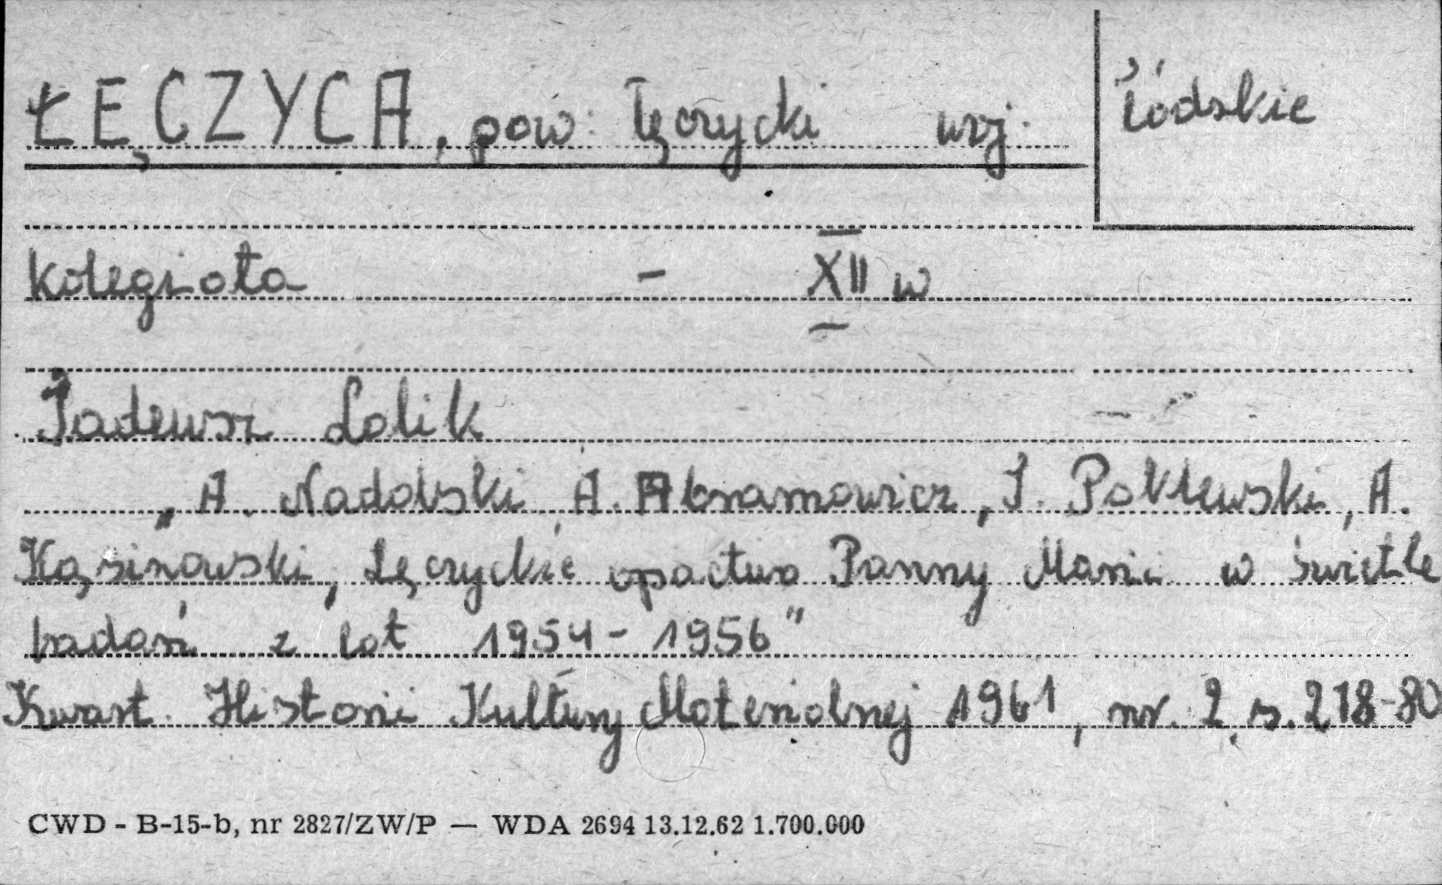 ŁĘCZYCA, pow. Łęczycki woj. łódzkie
kolegiata - XII w
Tadeusz Lalik
„A. Nadolski, A. Abramowicz, T. Poklewski, A.
Kąsinowski, Łęczyckie opactwo Panny Marii w świetle
badań z lat 1954 - 1956"
Kwart. Historii Kultury Materialnej 1961, nr. 2, s. 218-80
CWD - B-15-b, nr 2827/ZW/P — WDA 2694 13.12.62 1.700.000